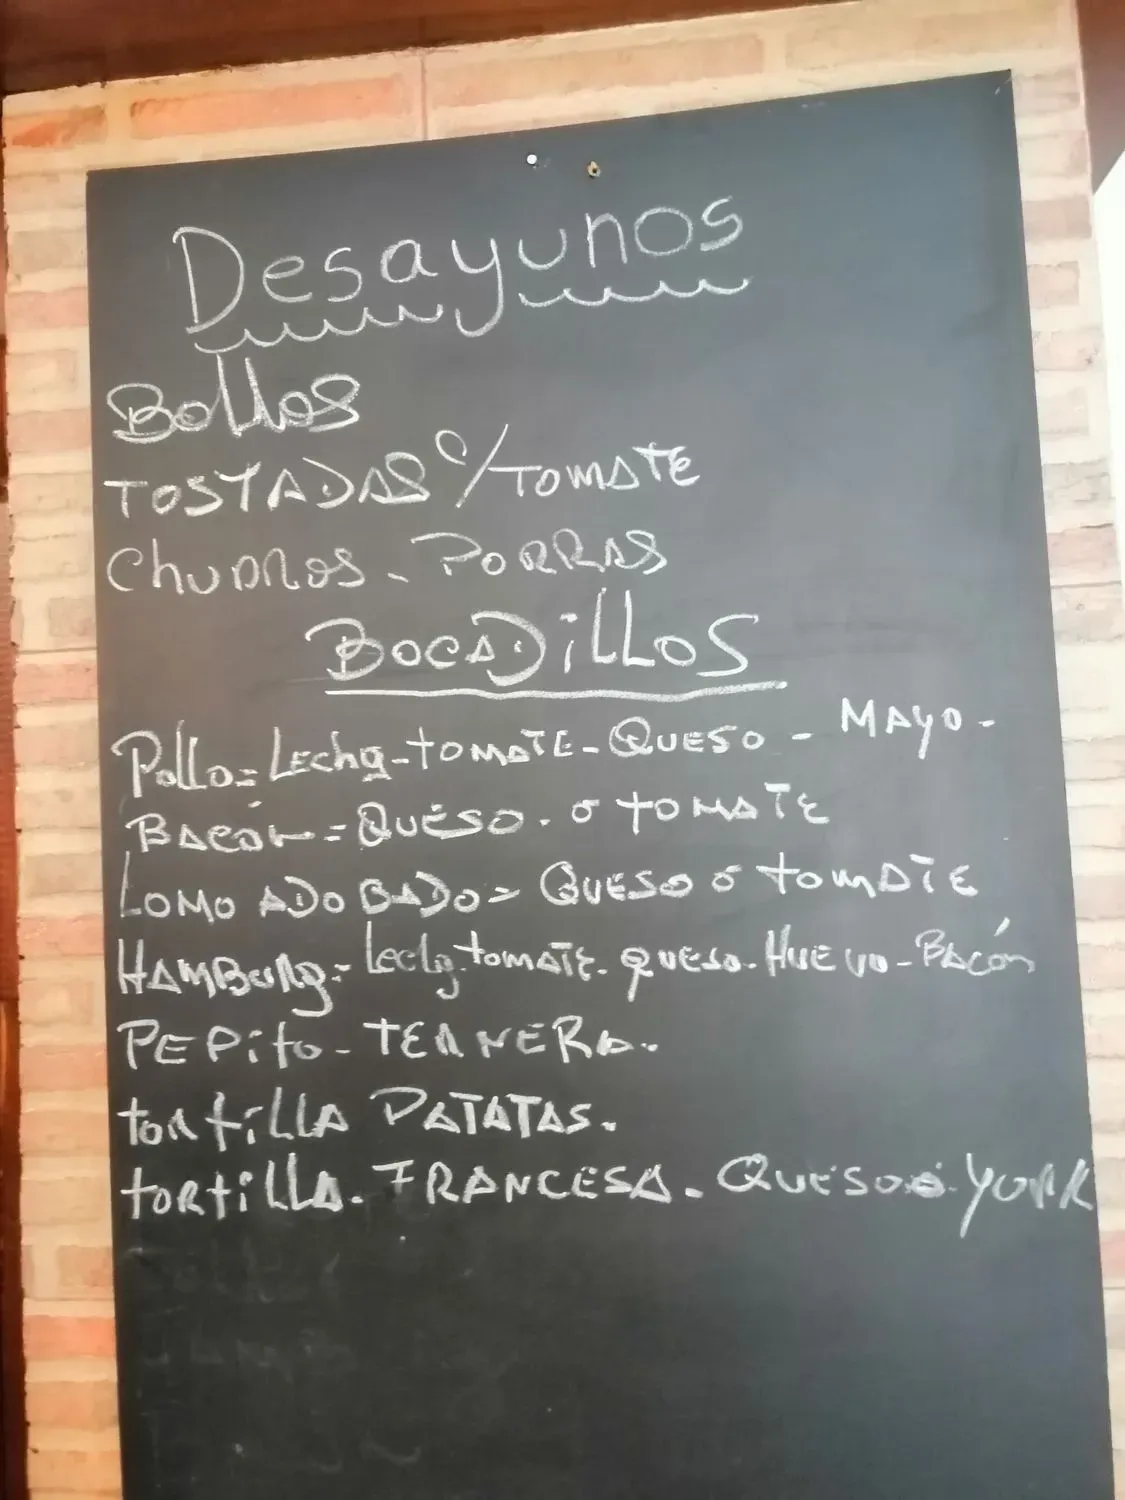 Desayunos
Bollos
TOSTADAS C/TOMATE
Churros - PORRAS
BOCADiLLOS
Pollo = Lechg - tOMATE - QUESO - MAYO -
BACÓN = QUESO. ó tOMATE
LOMO ADOBADO = QUESO ó tOMATE
HAMBURg = Lechg. tomATE. queso. HUEVO - BACóN
PEPito - TERNERA.
tortiLLA PATATAS.
tORtiLLA. FRANCESA. QUESO ó YORK